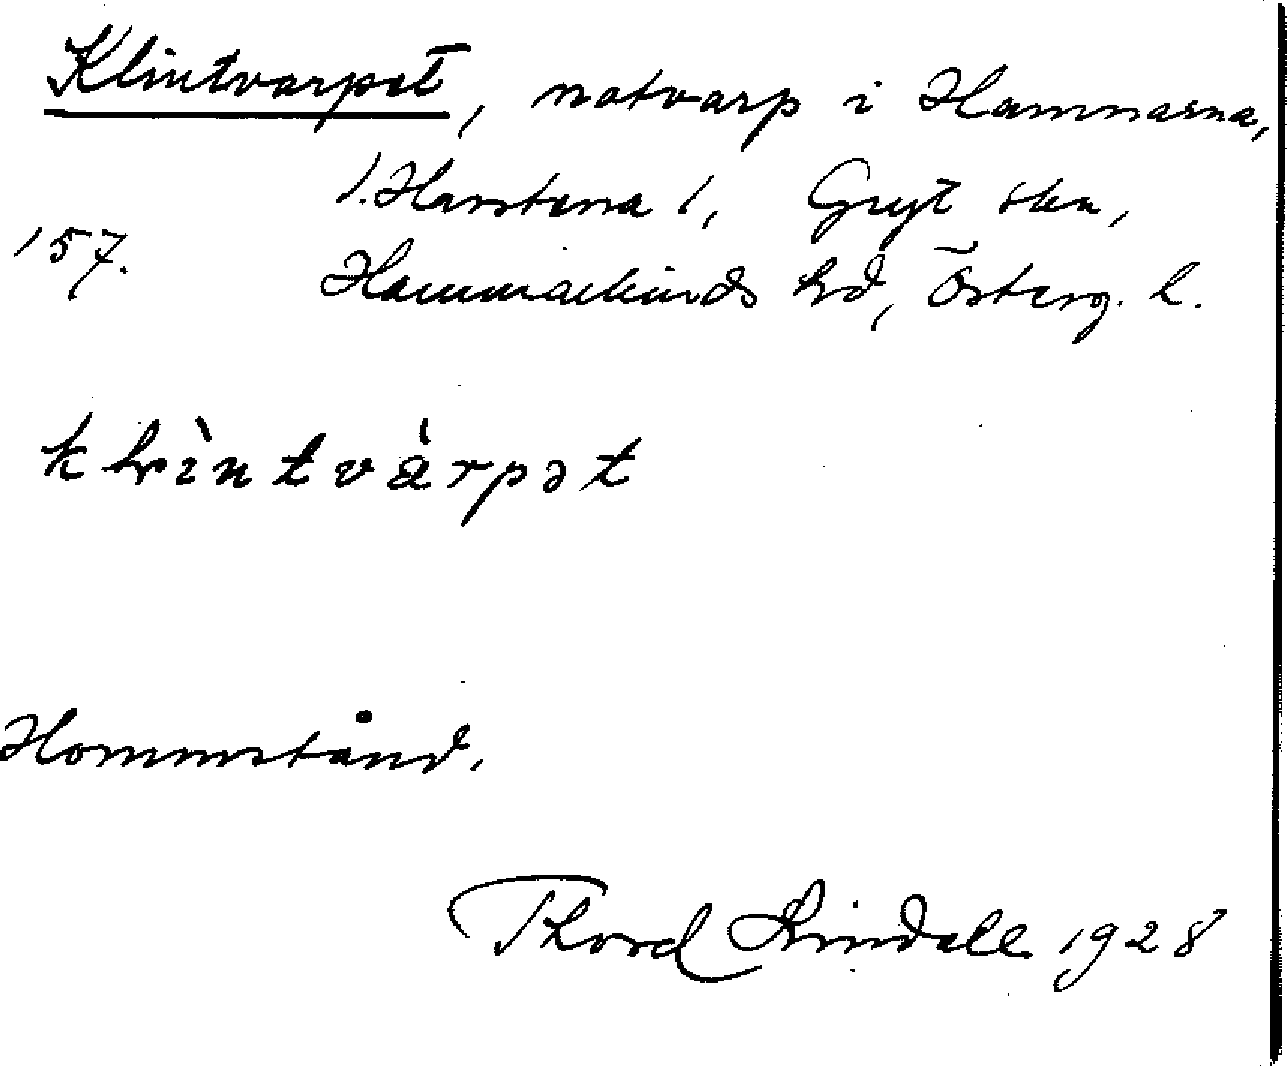 Klintvarpet, notvarp i Hamnarna,
1. Harstena 1, Gryt skn,
157. Hammarkinds hd, Österg. l.
klìntvàrpət
Hommstånd.
Thord Lindall 1928